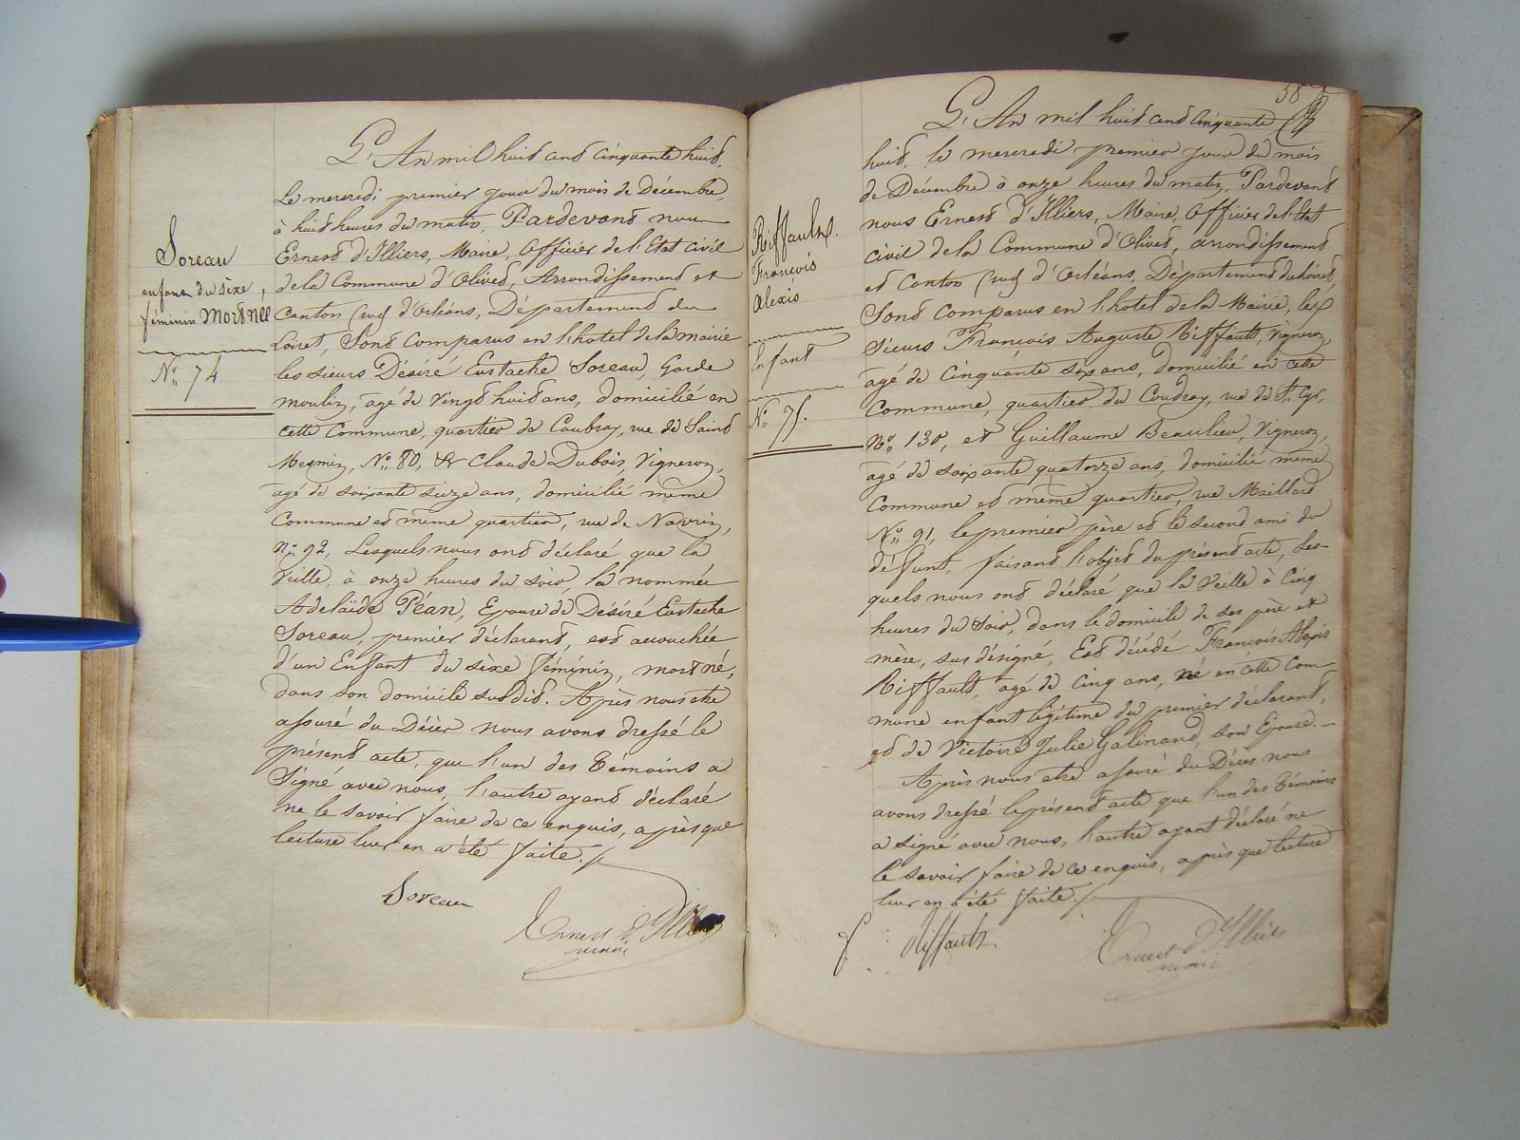 Soreau
enfant du sèxe,
féminin Mort Née
N° 74
L'An mil huit cent cinquante huit,
Le mercredi premier jour du mois de Décembre,
à huit heures du matin, Pardevant nous
Ernest d'Illiers, Maire, Officier de l'Etat civil
de la Commune d'Olivet, Arrondissement et
Canton Sud d'Orléans, Département du
Loiret, Sont comparus en l'hôtel de la mairie
les sieurs Désiré Eustache Soreau, Garde
moulin, agé de Vingt huit ans, domicilié en
cette Commune, quartier de Caubray, rue de Saint
Mesmin, N° 80, & Claude Dubois, Vigneron,
agé de soixante seize ans, domicilié même
Commune et même quartier, rue de Navrin,
N° 92, Lesquels nous ont déclaré que la
Veille, à onze heures du soir la nommée
Adelaïde Péan, Epouse de Désiré Eustache
Soreau, premier déclarant, est accouchée
d'un Enfant du sèxe féminin, mort né,
dans son domicile susdit. Après nous etre
assuré du Décès nous avons dressé le
présent acte, que l'un des témoins a
Signé avec nous, l'autre ayant déclaré
ne le savoir faire de ce enquis, après que
lecture leur en a été faite.
Soreau
Ernest d'Illiers
maire
58
Riffault
François
Alexis
Enfant
N° 75.
L'An mil huit cent cinquante
huit, le mercredi premier jour du mois
de Décembre à onze heures du matin, Pardevant
nous Ernest d'Illiers, Maire, Officier de l'Etat
civil de la Commune d'Olivet, arrondissement
et Canton Sud d'Orléans, Département du Loiret,
Sont comparus en l'hôtel de la Mairie, les
Sieurs François Auguste Riffault, Vigneron,
agé de Cinquante six ans, domicilié en cette
Commune, quartier du Coudray, rue de St. Cyr,
N° 130, et Guillaume Beaulieu, Vigneron,
agé de soixante quatorze ans, domicilié même
Commune et même quartier, rue Maillard
N° 91, le premier père et le second ami du
défunt, faisant l'objet du présent acte, Les-
quels nous ont déclaré que la Veille à Cinq
heures du Soir, dans le domicile de ses père et
mère, sus désigné, Est décédé François Alexis
Riffault, agé de Cinq ans, né en cette Com-
mune enfant légitime du premier déclarant,
et de Victoire Julie Galinand, son Epouse.
Après nous etre assuré du Décès nous
avons dressé le présent acte que l'un des témoins
a signé avec nous, l'autre ayant déclaré ne
le savoir faire de ce enquis, après que lecture
leur en a été faite.
Riffault
Ernest d'Illiers
maire